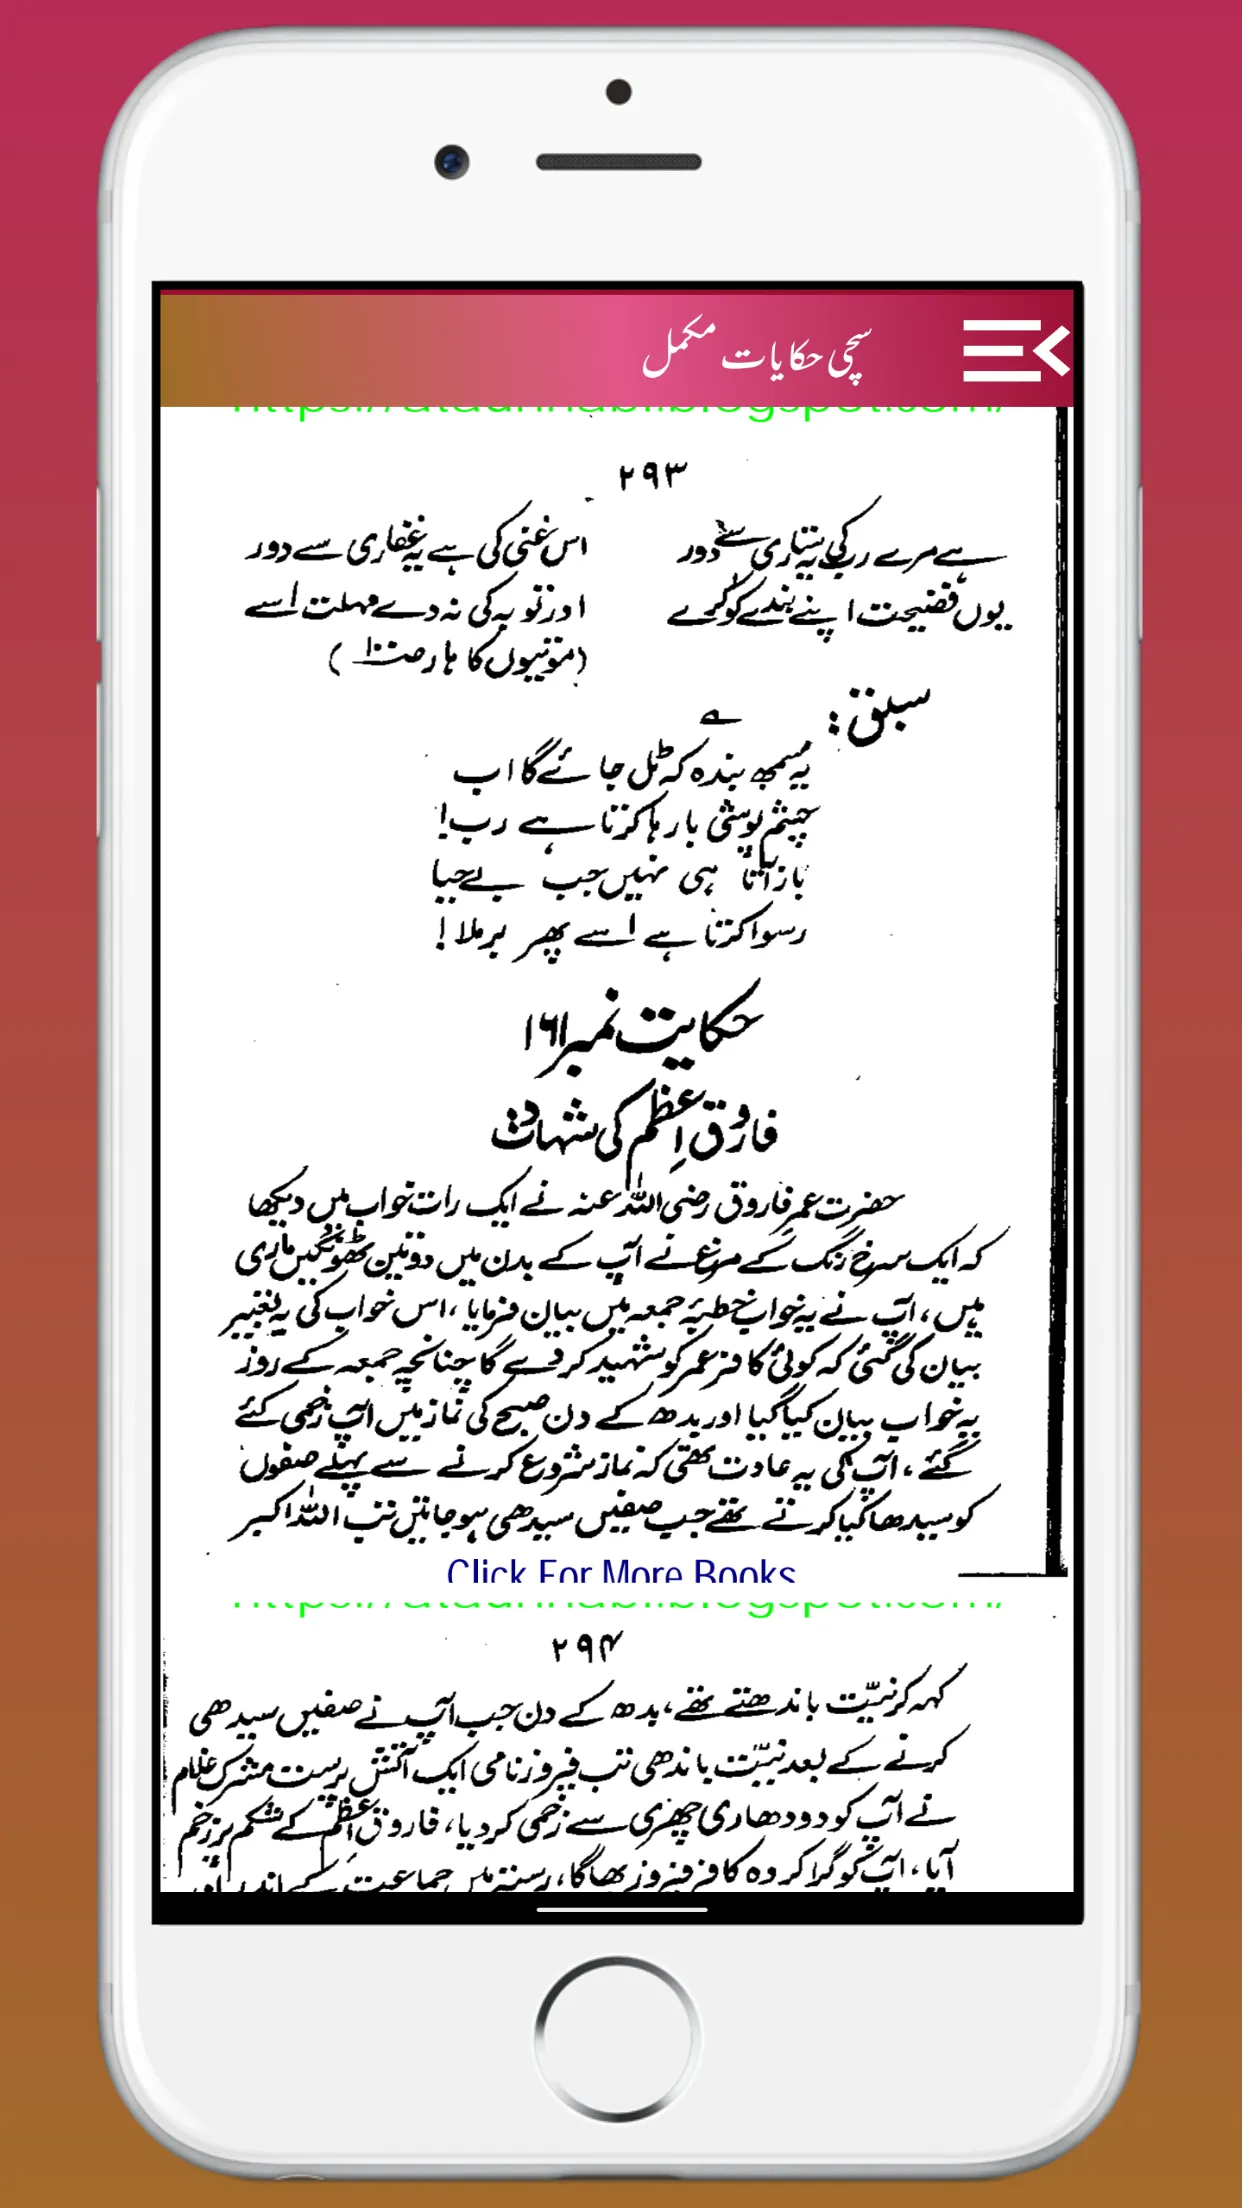 سچی حکایات مکمل
۲۹۳
ہے مرے رب کی یہ ستاری سے دور اس غنی کی ہے یہ غفاری سے دور
یوں فضیحت اپنے بندے کو کرے اور توبہ کی نہ دے مہلت اسے
(موتیوں کا ہار صنا)
سبق:
یہ سمجھ بندہ کہ ٹل جائے گا اب
چشم پوشی بارہا کرتا ہے رب!
باز آتا ہی نہیں جب بے حیا
رسوا کرتا ہے اسے پھر برملا!
حکایت نمبر ۱۶۱
فاروقِ اعظم کی شہادت
حضرت عمر فاروق رضی اللہ عنہ نے ایک رات خواب میں دیکھا
کہ ایک سرخ رنگ کے مرغ نے آپ کے بدن میں دو تین ٹھونگیں ماری
ہیں، آپ نے یہ خواب خطبۂ جمعہ میں بیان فرمایا، اس خواب کی یہ تعبیر
بیان کی گئی کہ کوئی کافر عمر کو شہید کر دے گا چنانچہ جمعہ کے روز
یہ خواب بیان کیا گیا اور بدھ کے دن صبح کی نماز میں آپ زخمی کئے
گئے، آپ کی یہ عادت تھی کہ نماز شروع کرنے سے پہلے صفوں
کو سیدھا کیا کرتے تھے جب صفیں سیدھی ہو جاتیں تب اللہ اکبر
Click For More Books
۲۹۴
کہہ کر نیّت باندھتے تھے، بدھ کے دن جب آپ نے صفیں سیدھی
کرنے کے بعد نیّت باندھی تب فیروز نامی ایک آتش پرست مشرک غلام
نے آپ کو دو دھاری چھری سے زخمی کر دیا، فاروقِ اعظم کے شکم پر زخم
آیا، آپ کو گرا کر وہ کافر فیروز بھاگا، رستہ میں جماعت کے اندر